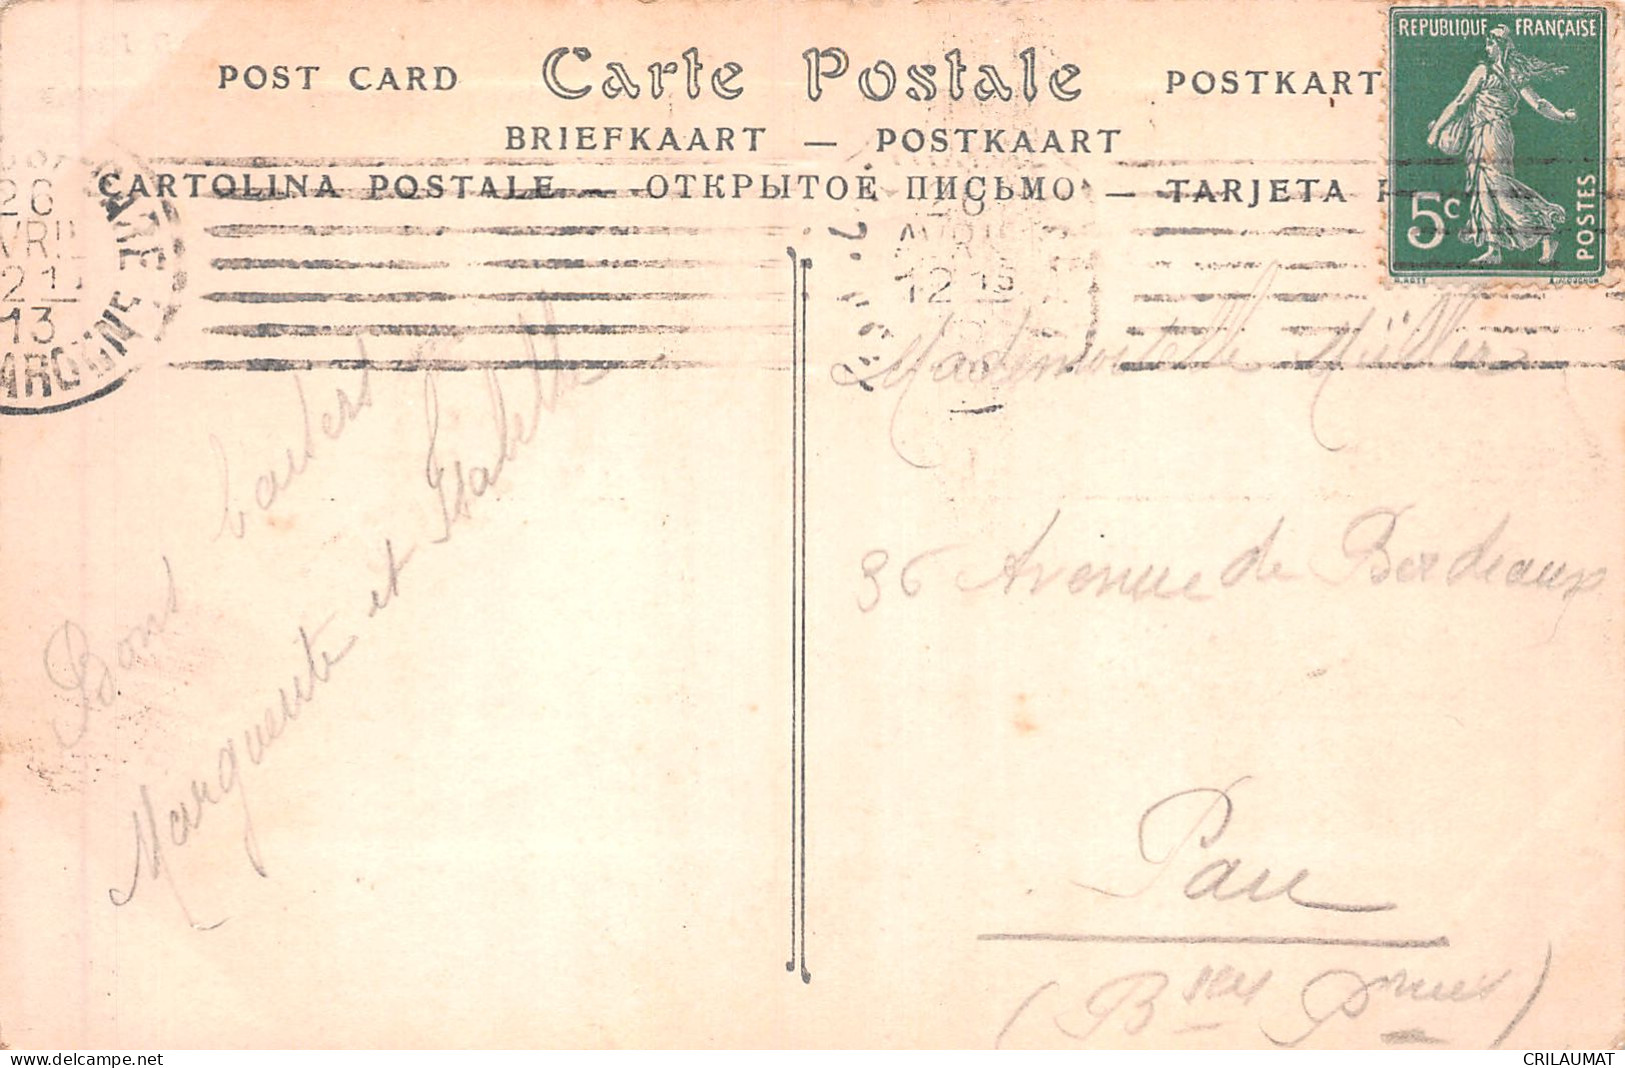 POST CARD Carte Postale POSTKART
BRIEFKAART — POSTKAART
CARTOLINA POSTALE — ОТКРЫТОЕ ПИСЬМО — TARJETA P
REPUBLIQUE FRANÇAISE
5c
POSTES
26
AVRIL
13
AVRIL
12 15
Bons baisers
Marguerite et Isabelle
Mademoiselle Müller
36 Avenue de Bordeaux
Pau
(Bses Pyrénées)
CRILAUMAT